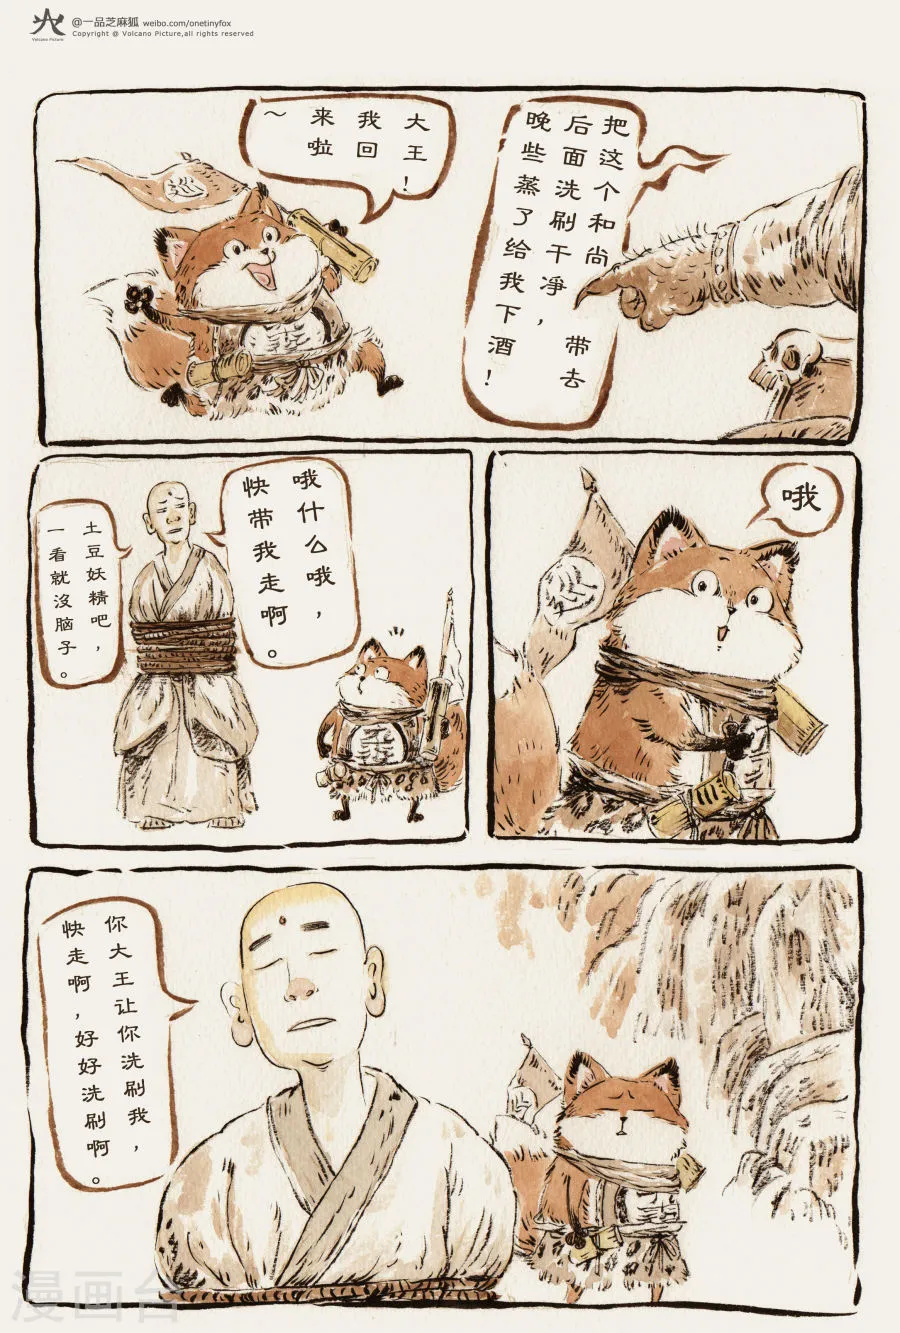 火
Volcano Picture
@一品芝麻狐 weibo.com/onetinyfox
Copyright @ Volcano Picture,all rights reserved
大王！
我回
来啦
～
巡
把这个和尚
后面洗刷干净，带去
晚些蒸了给我下酒！
哦什么哦，
快带我走啊。
土豆妖精吧，
一看就沒脑子。
哦
巡
你大王让你洗刷我，
快走啊，好好洗刷啊。
漫画台